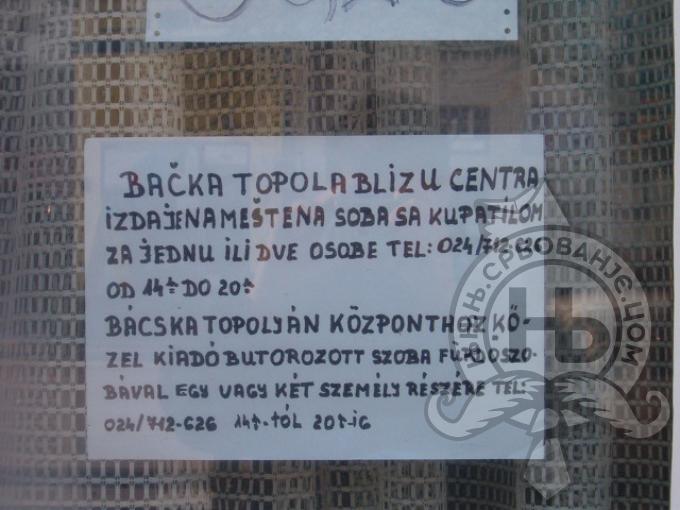 BAČKA TOPOLA BLIZU CENTRA
IZDAJE NAMEŠTENA SOBA SA KUPATILOM
ZA JEDNU ILI DVE OSOBE TEL: 024/712-626
OD 14h DO 20h
BÁCSKA TOPOLYÁN KÖZPONTHOZ KÖ-
ZEL KIADÓ BUTOROZOTT SZOBA FÜRDOSZO-
BÁVAL EGY VAGY KÉT SZEMÉLY RÉSZÉRE TEL:
024/712-626 14h-TÓL 20h-IG
Њ
СРБОВАЊЕ.ЦОМ